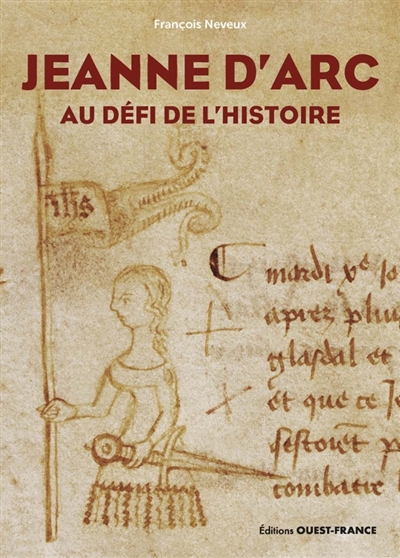 François Neveux
JEANNE D'ARC
AU DÉFI DE L'HISTOIRE
ihs
mardi xe jo
aprez plui
glasdal et
et que ce Je
combatre
Éditions OUEST-FRANCE